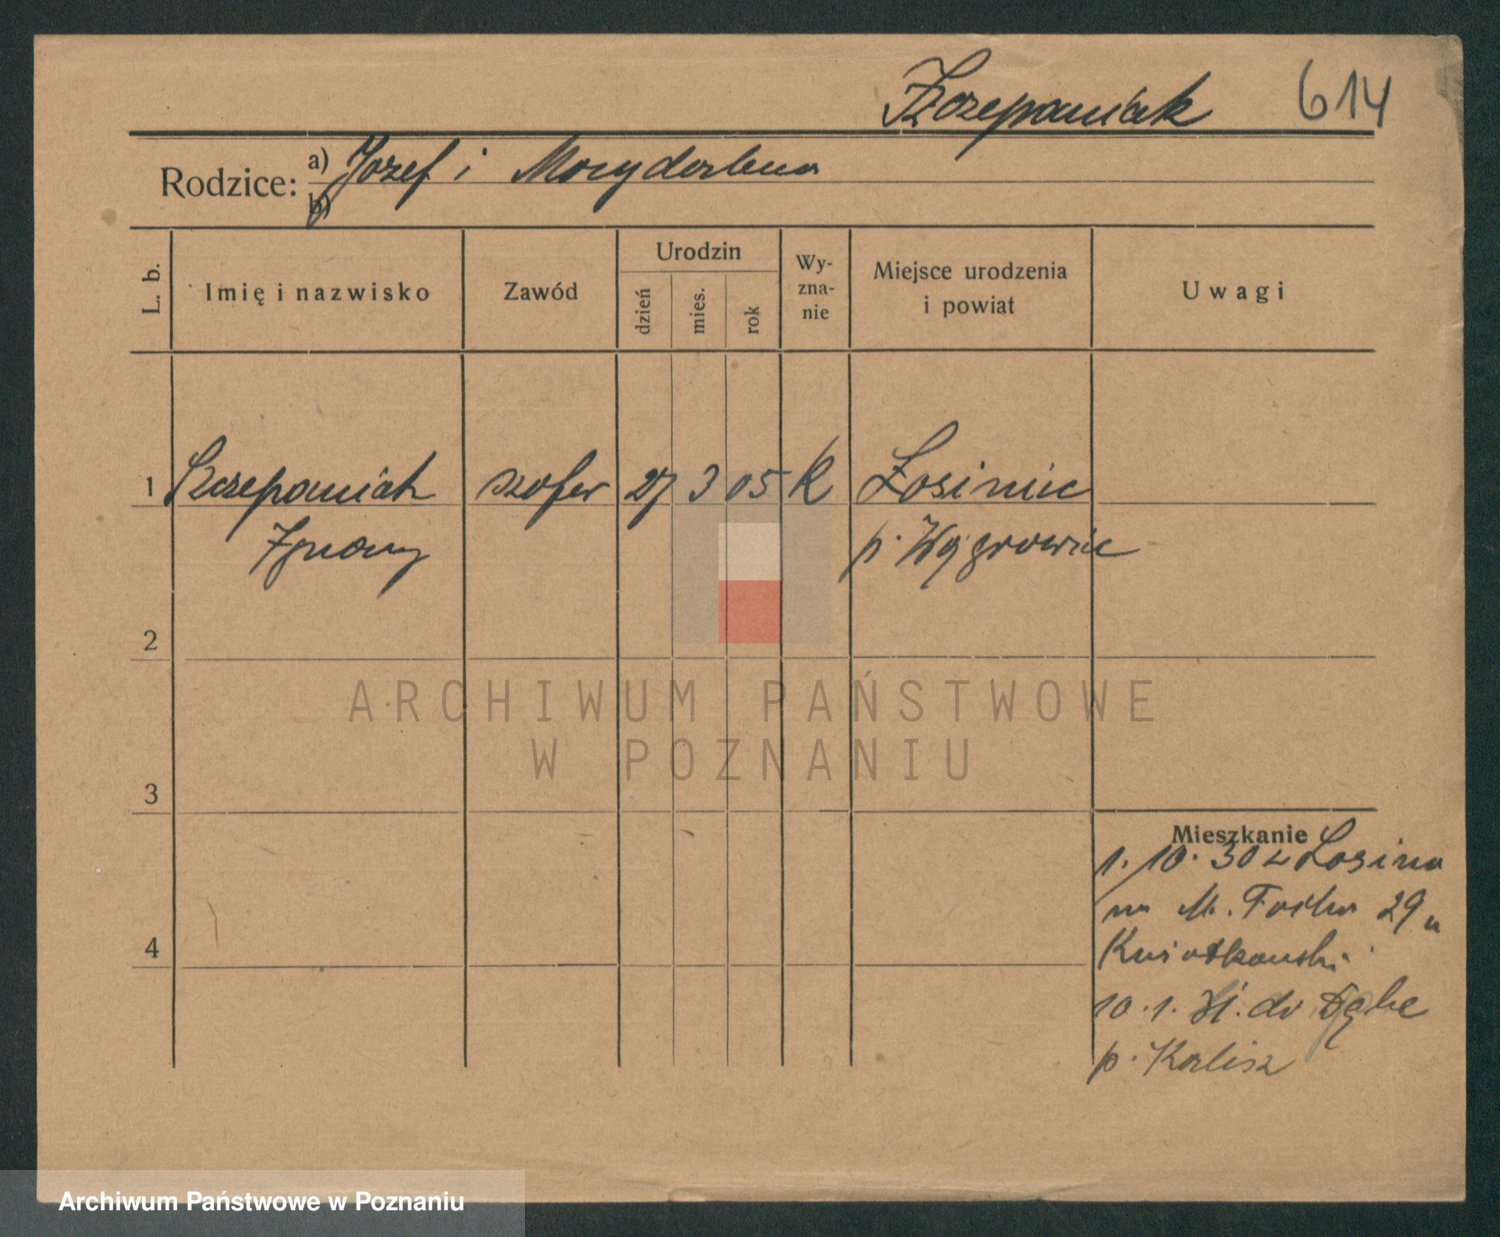 Szczepaniak 614
Rodzice: a) Józef i Magdalena
b)
L. b.
Imię i nazwisko
Zawód
Urodzin
dzień
mies.
rok
Wy-
zna-
nie
Miejsce urodzenia
i powiat
Uwagi
1 Szczepaniak szofer 27 3 05 K Łosiniec
Ignacy p. Wągrowiec
2
3
4
Mieszkanie
1. 10. 30 z Łosina
na M. Focha 29 u
Kwiatkowski
10. 1. 31. do
p. Kalisz
ARCHIWUM PAŃSTWOWE
W POZNANIU
Archiwum Państwowe w Poznaniu